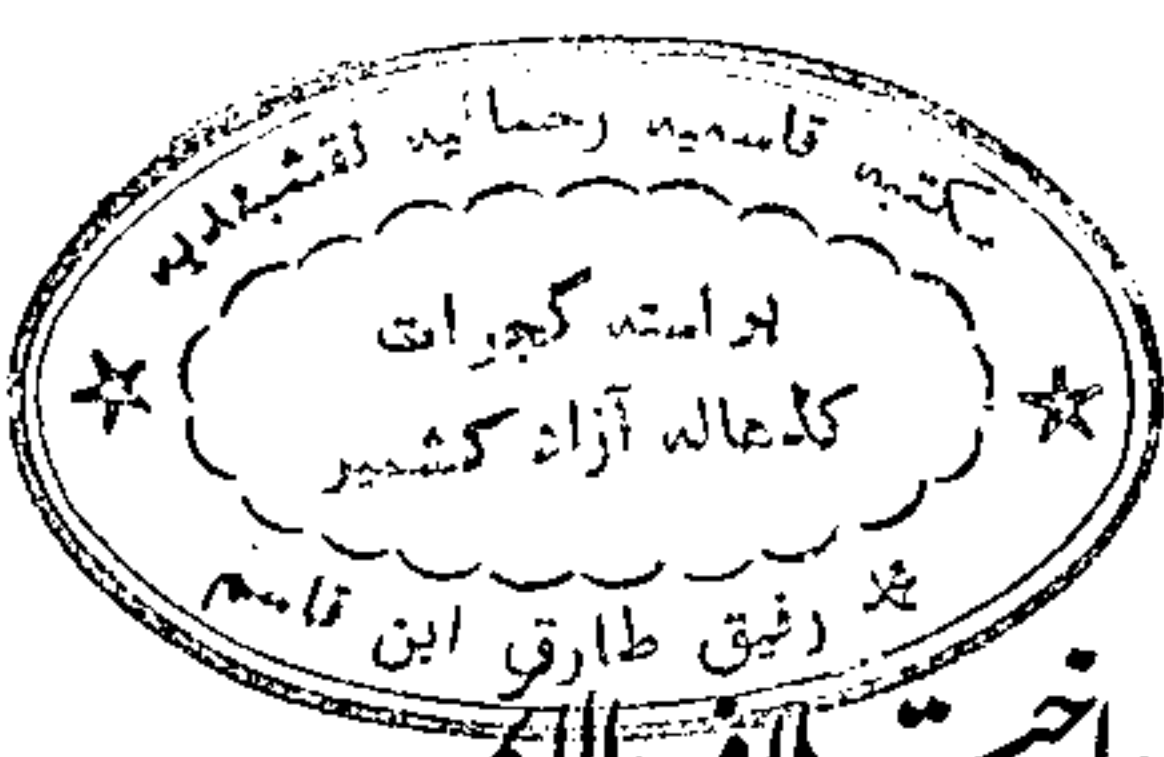 مکتبہ قاسمیہ رحمانیہ نقشبندیہ
براستہ گجرات
آزاد کشمیر
محمد رفیق طارق ابن قاسم